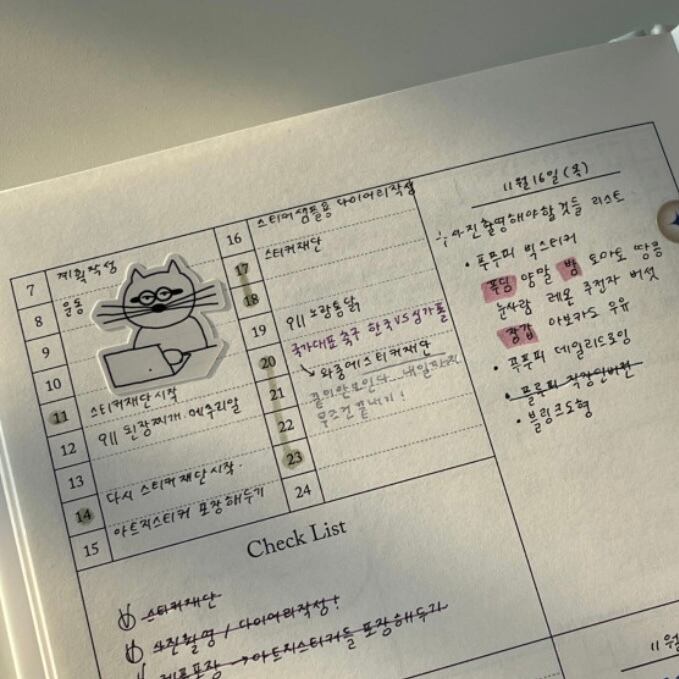 7 계획작성
8 운동
9
10
11 스티커재단시작
12 먹 된장찌개. 메추리알
13
14 다시 스티커재단시작.
15 아트지스티커 포장해두기
16 스티커샘플용 다이어리작성
17 스티커재단
18
19 먹 노랑통닭
국가대표축구 한국VS싱가폴
20 ↳ 와중에스티커재단
21 끝이안보인다... 내일까지
22 무조건끝내기!
23
24
11월16일(목)
사진촬영해야할것들 리스트
• 푸푸피 빅스티커
푸딩 양말 밤 토마토 땅콩
눈사람 레몬 주전자 버섯
장갑 아보카도 우유
• 푸푸피 데일리드로잉
• 플루피 직장인버전
• 블링크도형
Check List
스티커재단
사진촬영 / 다이어리작성!
포장 → 아트지스티커들 포장해두기
11월